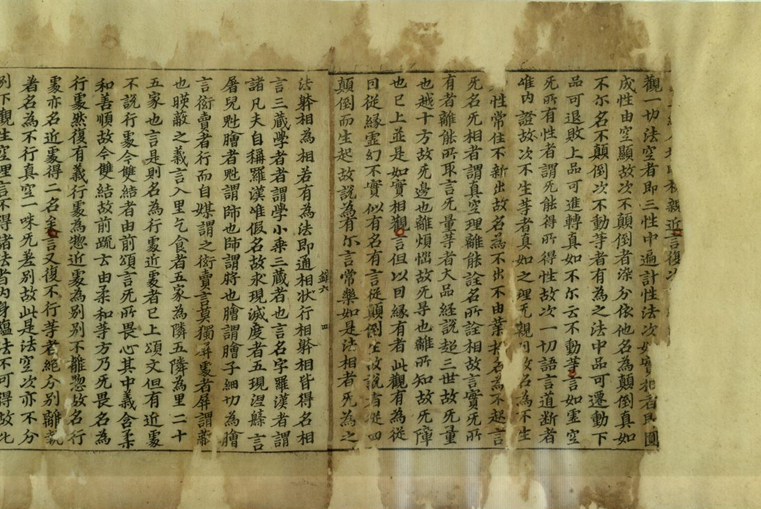 親近言復次
觀一切法空者即三性中遍計性法次如實相者即圓
成性由空顯故次不顛倒者染分依他名為顛倒真如
不尔名不顛倒次不動等者有為之法中品可遷動下
品可退敗上品可進轉真如不尔云不動等言如虛空
无所有性者謂无能得所得性故次一切語言道斷者
唯内證故次不生等者真如之理无故名為不生
性常住不新出故名為不出不由業名為不起言
无名无相者謂真空理離能詮名所詮相故言實无所
有者離能所取言无量等者大品經説超三世故无量
也越十方故无邊也離煩惱故无㝵也離所知故无障
也已上並是如實相觀言但以因緣有者此觀有為從
因從緣虛幻不實似有名有言從顛倒生故説者從四
顛倒而生起故説為有尔言常樂如是法相者无為之
六 四
法躰相為相若有為法即通相状行相躰相皆得名相
言三藏學者者謂學小乘三藏者也言名字羅漢者謂
諸凡夫自稱羅漢唯假名故求現滅度者五現涅槃言
屠兒魁膾者魁謂師也帥謂將也膾謂膾子細切為膾
言衒賣者行而自媒謂之衒賣言莫獨屏處者屏謂蔽
也曖蔽之義言入里乞食者五家為隣五隣為里二十
五家也言是則名為行處近處者已上頌文但有近處
不説行處今雙結者由前頌言无所畏心其中義含柔
和善順故今雙結故前疏云由柔和等方乃无畏名為
行處然復有義行處為惣近處為別別不離惣故名行
處亦名近處得二名矣言又復不行等者絶分別離説
著名為不行真空一味无差別故此是法空次亦不分
別下觀生空理言不得諸法者内身蘊法不可得故此